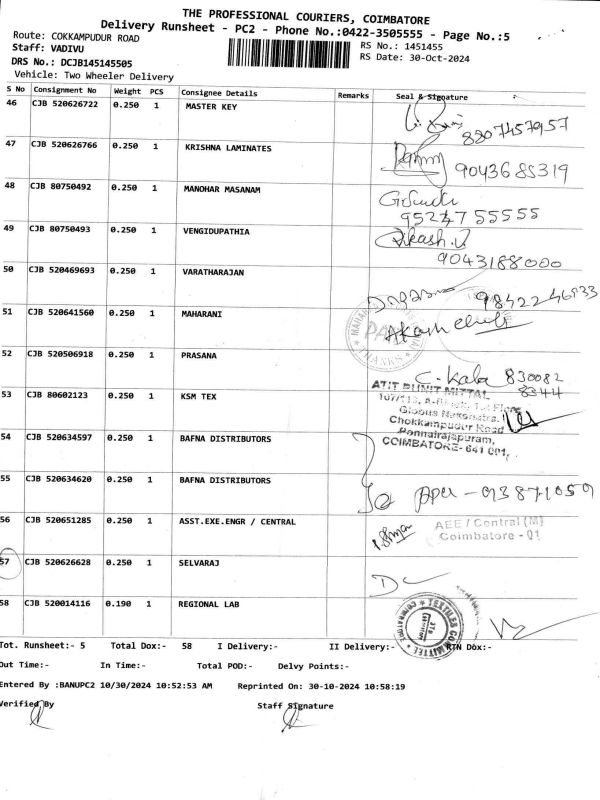 THE PROFESSIONAL COURIERS, COIMBATORE
Delivery Runsheet - PC2 - Phone No.:0422-3505555 - Page No.:5
Route: COKKAMPUDUR ROAD
RS No.: 1451455
Staff: VADIVU
RS Date: 30-Oct-2024
DRS No.: DCJB145145505
Vehicle: Two Wheeler Delivery
S No Consignment No Weight PCS Consignee Details Remarks Seal & Signature
46 CJB 520626722 0.250 1 MASTER KEY
8807457957
47 CJB 520626766 0.250 1 KRISHNA LAMINATES
9043685319
48 CJB 80750492 0.250 1 MANOHAR MASANAM
9524755555
49 CJB 80750493 0.250 1 VENGIDUPATHIA
9043188000
50 CJB 520469693 0.250 1 VARATHARAJAN
51 CJB 520641560 0.250 1 MAHARANI
THANKS
52 CJB 520506918 0.250 1 PRASANA
C. Kala 830082
8344
53 CJB 80602123 0.250 1 KSM TEX
COIMBATORE - 641 001.
54 CJB 520634597 0.250 1 BAFNA DISTRIBUTORS
55 CJB 520634620 0.250 1 BAFNA DISTRIBUTORS
56 CJB 520651285 0.250 1 ASST.EXE.ENGR / CENTRAL
AEE / Central (M)
Coimbatore - 01
57 CJB 520626628 0.250 1 SELVARAJ
58 CJB 520014116 0.190 1 REGIONAL LAB
TEXTILES COMMITTEE
Tot. Runsheet:- 5 Total Dox:- 58 I Delivery:- II Delivery:- RTN Dox:-
Out Time:- In Time:- Total POD:- Delvy Points:-
Entered By :BANUPC2 10/30/2024 10:52:53 AM Reprinted On: 30-10-2024 10:58:19
Verified By Staff Signature